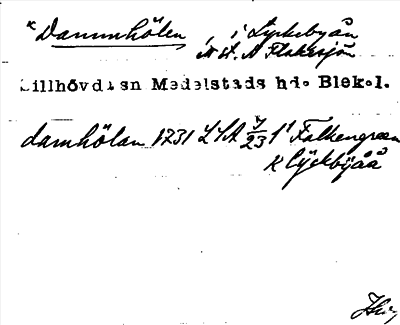 * Dammhölen, i Lyckebyån
N V. N Flakesjön
Lillhövdasn Medelstads hd. Blek.l.
damhölan 1731 LSA 7/23 1¹ Falkengreen
K Lyckbÿåå